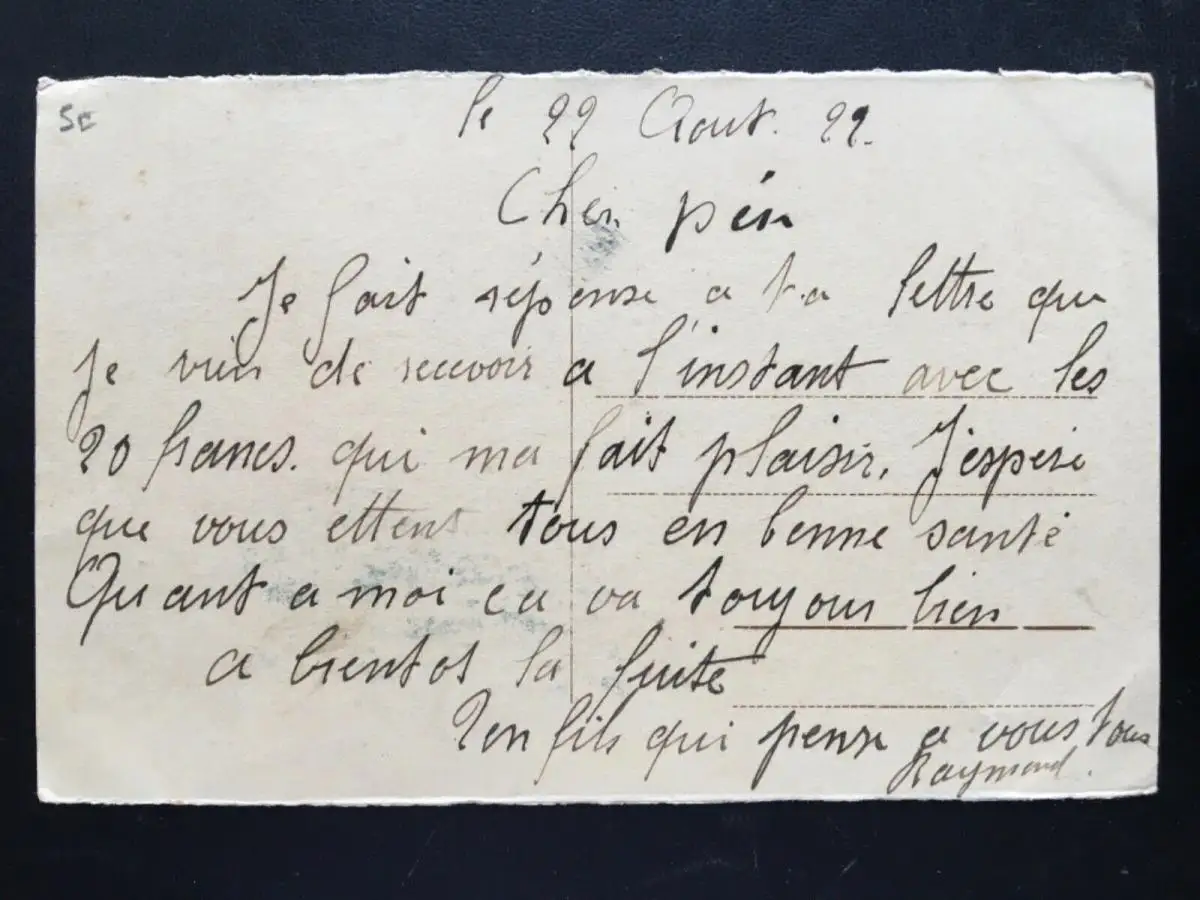 5€
le 22 Aout. 22.
Cher père
Je fait réponse a ta lettre que
Je vien de recevoir a l'instant avec les
20 francs. qui ma fait plaisir. J'espere
que vous ettent tous en bonne santé
Quant a moi ca va toujour bien
a bientot la suite
Ton fils qui pense a vous tous
Raymond.